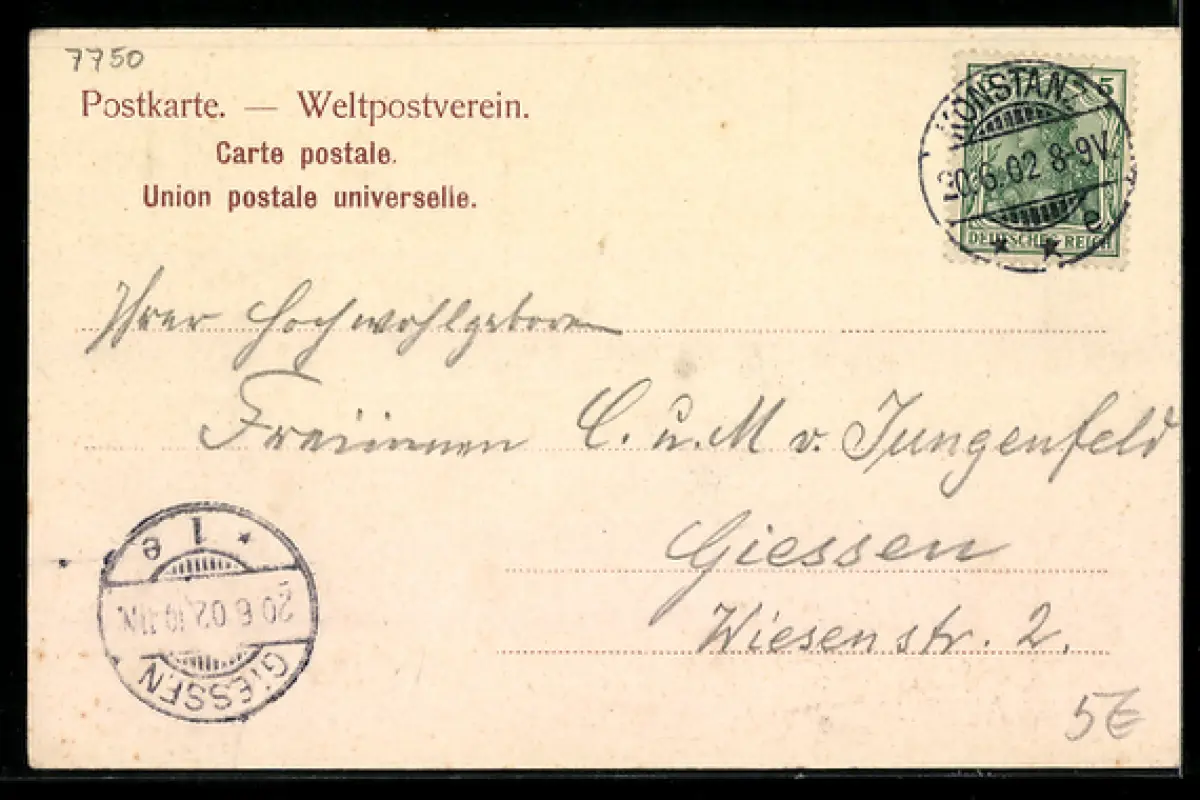 7750
Postkarte. — Weltpostverein.
Carte postale.
Union postale universelle.
5
KONSTANZ
20.6.02 8-9V.
* * e
DEUTSCHES REICH
Ihrer Hochwohlgeboren
Freiinnen C. u. M v. Jungenfeld
Giessen
Wiesenstr. 2.
GIESSEN
20 6 02.10-11N.
* 1 e
5€